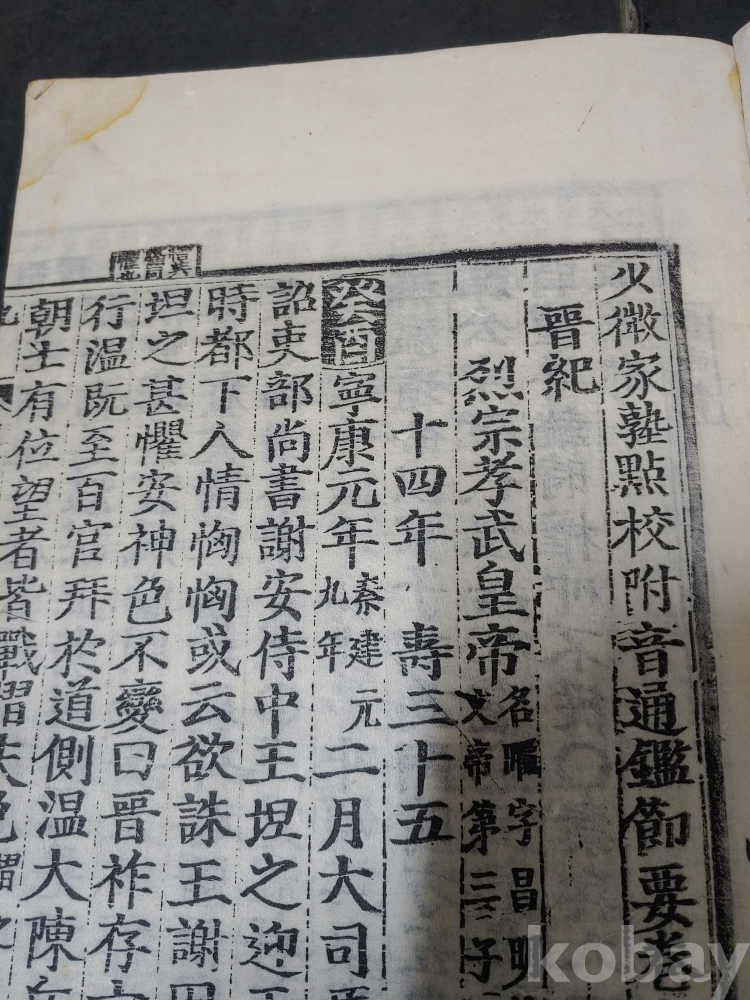 少微家塾點校附音通鑑節要卷
晉紀
烈宗孝武皇帝 名曜字昌明 文帝第三子
十四年 壽三十五
癸酉 寧康元年 秦建元九年 二月大司
詔吏部尚書謝安侍中王坦之迎
時都下人情恟恟或云欲誅王謝
坦之甚懼安神色不變曰晉祚存
行溫旣至百官拜於道側溫大陳
朝士有位望者皆戰慴失色
kobay